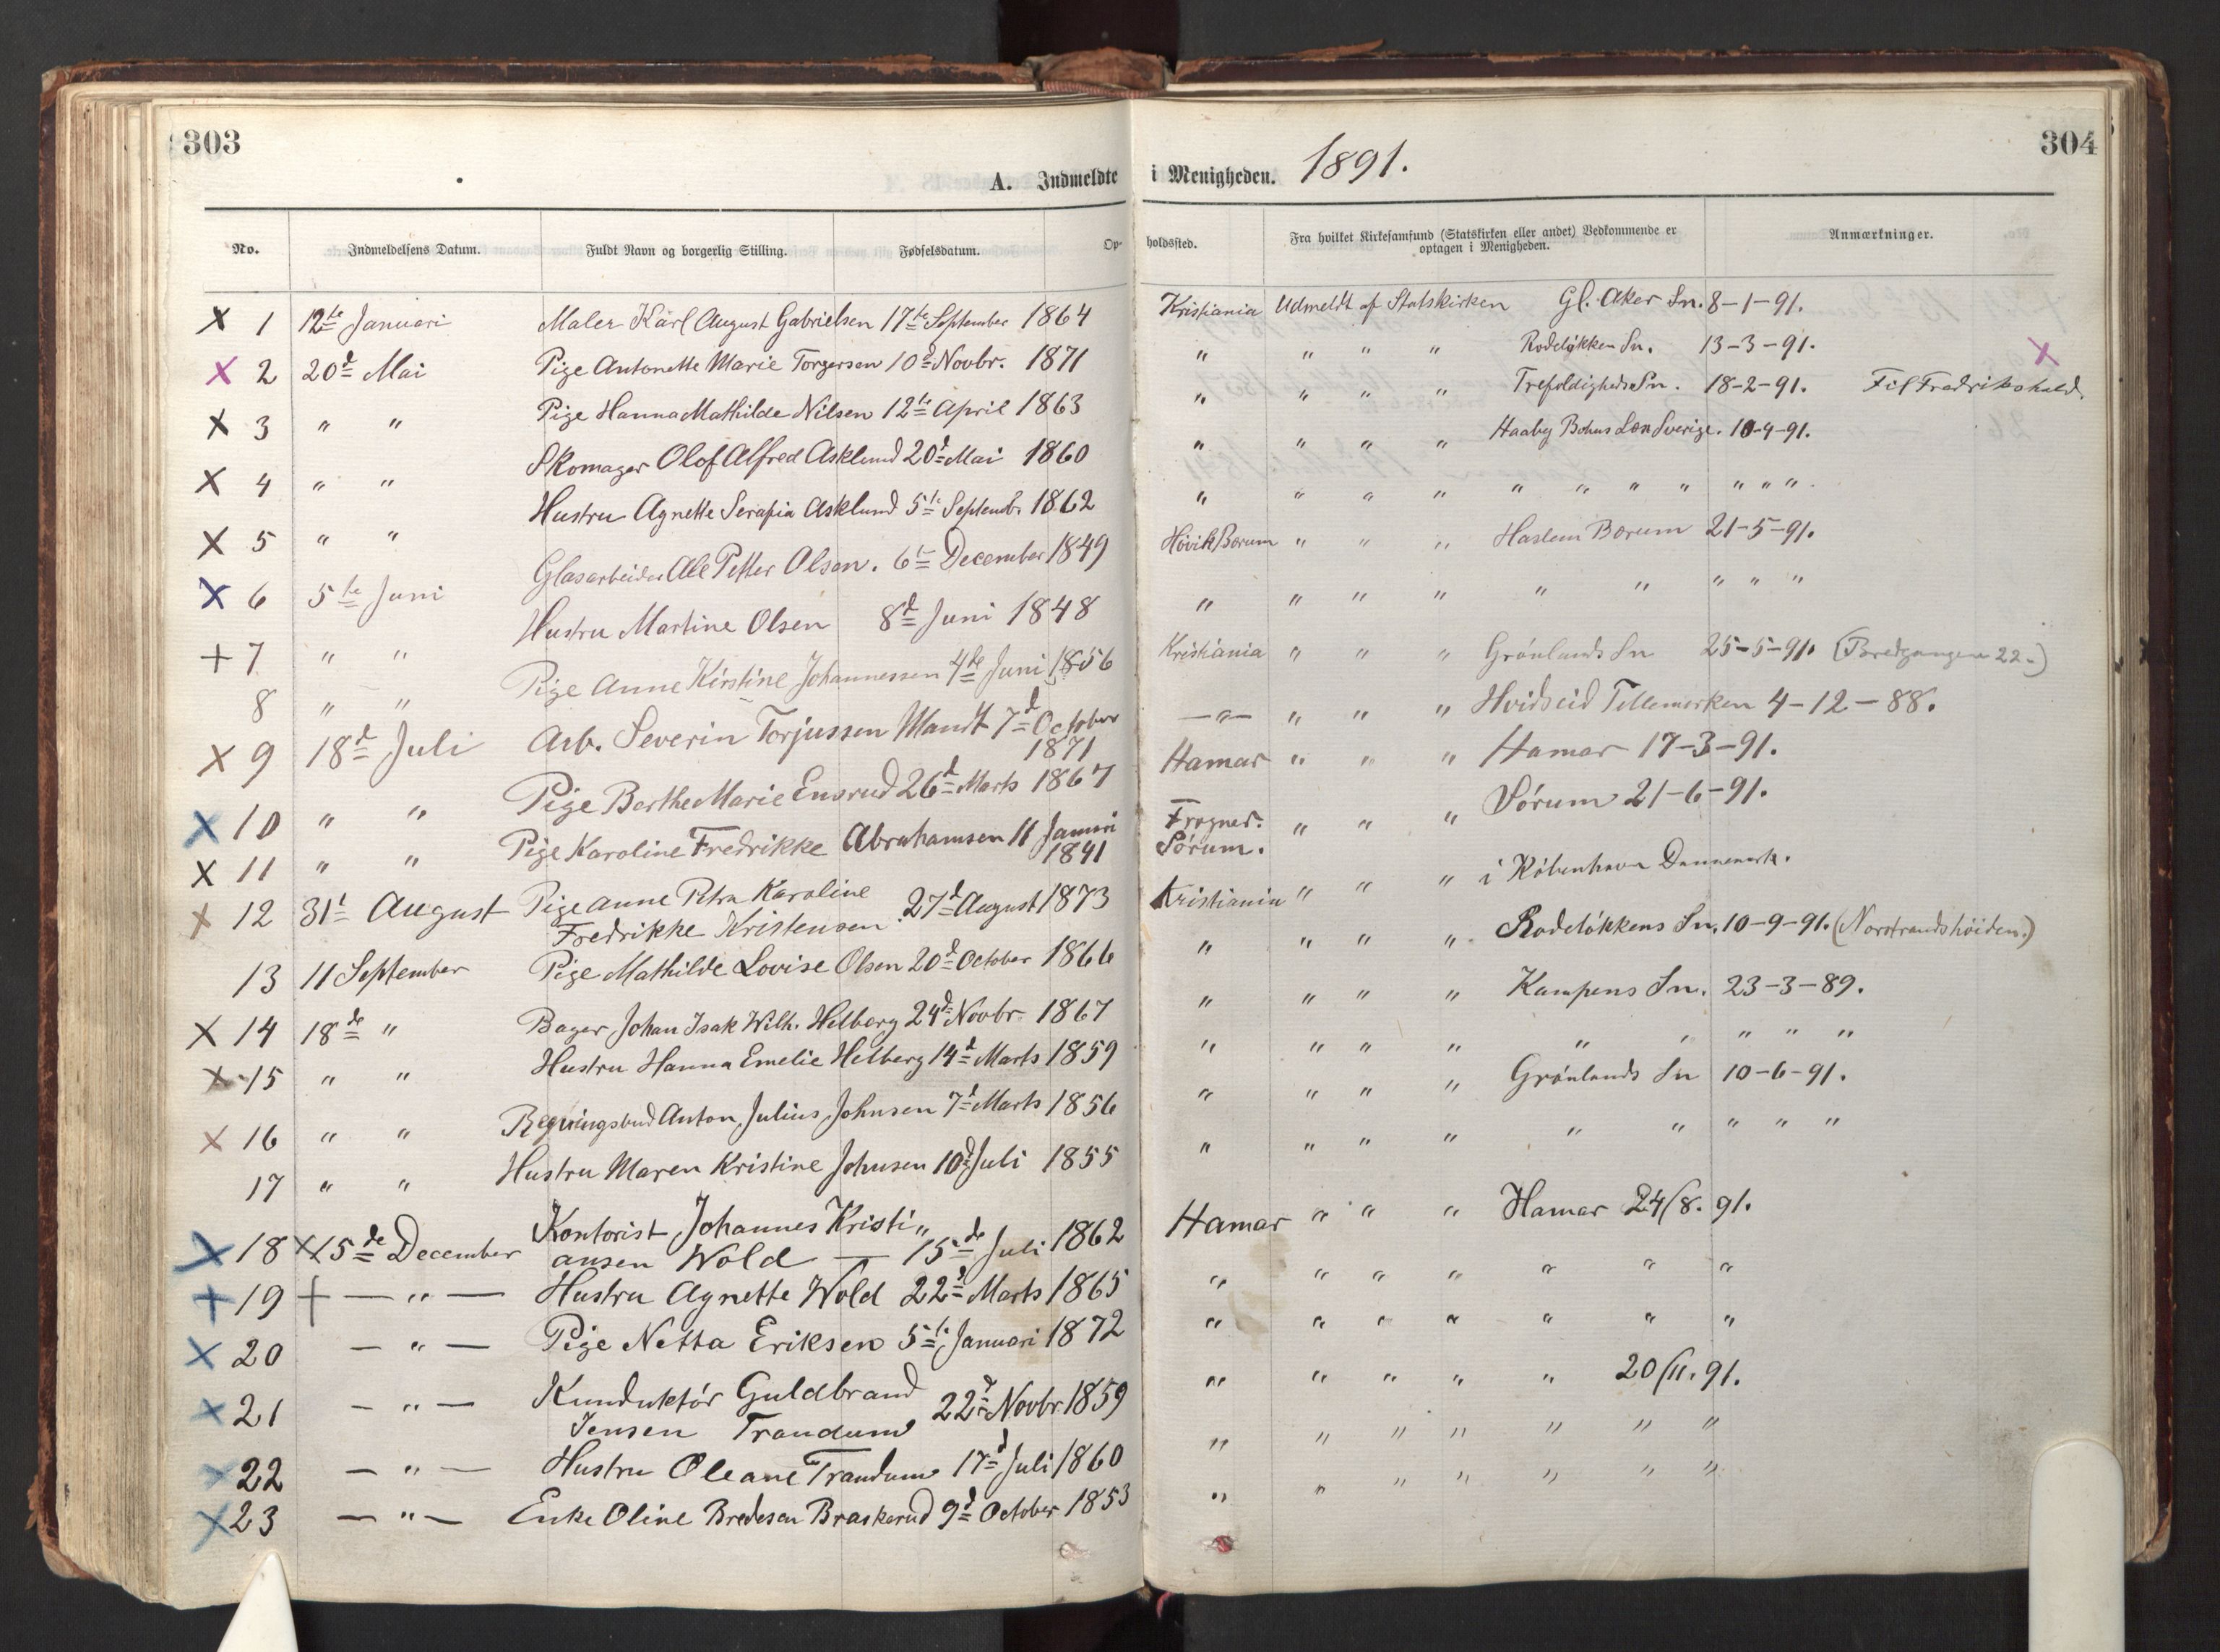 303
304
A. Indmeldte i Menigheden. 1891.
No. Indmeldelsens Datum. Fuldt Navn og borgerlig Stilling. Fødselsdatum. Op- holdssted. Fra hvilket Kirkesamfund (Statskirken eller andet) Vedkommende er Anmærkninger.
optagen i Menigheden.
X 1 12te Januari Maler Karl August Gabrielsen 17te September 1864 Kristiania Udmeldt af Statskirken Gl. Aker Sn. 8-1-91.
X 2 20d Mai Pige Antonette Marie Torgersen 10d Novbr. 1871 " " " " Rodeløkken Sn. 13-3-91. X
X 3 " " Pige Hanna Mathilde Nilsen 12te April 1863 " " " " Trefoldigheds Sn. 18-2-91. Til Fredrikshald.
X 4 " " Skomager Olof Alfred Asklund 20d Mai 1860 " " " " Haaby Bohus Læn Sverige. 10-4-91.
X 5 " " Hustru Agnette Serafia Asklund 5te Septemb. 1862 " " " " " " " " " " "
X 6 5te Juni Glasarbeider Ole Petter Olsen. 6te December 1849 Høvik Bærum " " " Haslem Bærum 21-5-91.
+ 7 " " Hustru Martine Olsen 8d Juni 1848 " " " " " " " " "
8 " " Pige Anne Kirstine Johannessen 4de Juni 1856 Kristiania " " " Grønlands Sn 25-5-91. (Bredgangen 22.)
X 9 18d Juli Arb. Severin Torjussen Mandt 7d October —"— " " " Hvidseid Tellemarken 4-12-88.
1871
X 10 " " Pige Berthe Marie Ensrud 26d Marts 1867 Hamar " " " Hamar 17-3-91.
X 11 " " Pige Karoline Fredrikke Abrahamsen 11 Januari Frogner. " " " Sørum 21-6-91.
1841 Sørum.
X 12 31t August Pige Anne Petra Karoline 27d August 1873 Kristiania " " " i København Dannemark.
Fredrikke Kristensen
13 11 September Pige Mathilde Lovise Olsen 20d October 1866 " " " " Rodeløkkens Sn. 10-9-91. (Norstrandshøiden.)
X 14 18de " Bager Johan Isak Wilh. Helberg 24d Novbr. 1867 " " " " Kampens Sn. 23-3-89.
X 15 " " Hustru Hanna Emelie Helberg 14d Marts 1859 " " " " " " " " "
X 16 " " Anton Julius Johnsen 7d Marts 1856 " " " " Grønlands Sn 10-6-91.
17 " " Hustru Maren Kristine Johnsen 10d Juli 1855 " " " " " " " " "
X 18 X 15de December Kontorist Johannes Kristi" Hamar " " " Hamar 24/8. 91.
ansen Wold — 15de Juli 1862
+ 19 + — " — Hustru Agnette Wold 22d Marts 1865 " " " " " " "
X 20 — " — Pige Netta Eriksen 5te Januari 1872 " " " " " " "
X 21 — " — Kunduktør Guldbrand 22d Novbr. 1859 " " " " " 20/11. 91.
Jensen Trandum
X 22 — " — Hustru Oleane Trandum 17d Juli 1860 " " " " " " "
X 23 — " — Enke Oline Bredesen Braskerud 9d October 1853 " " " " " " "